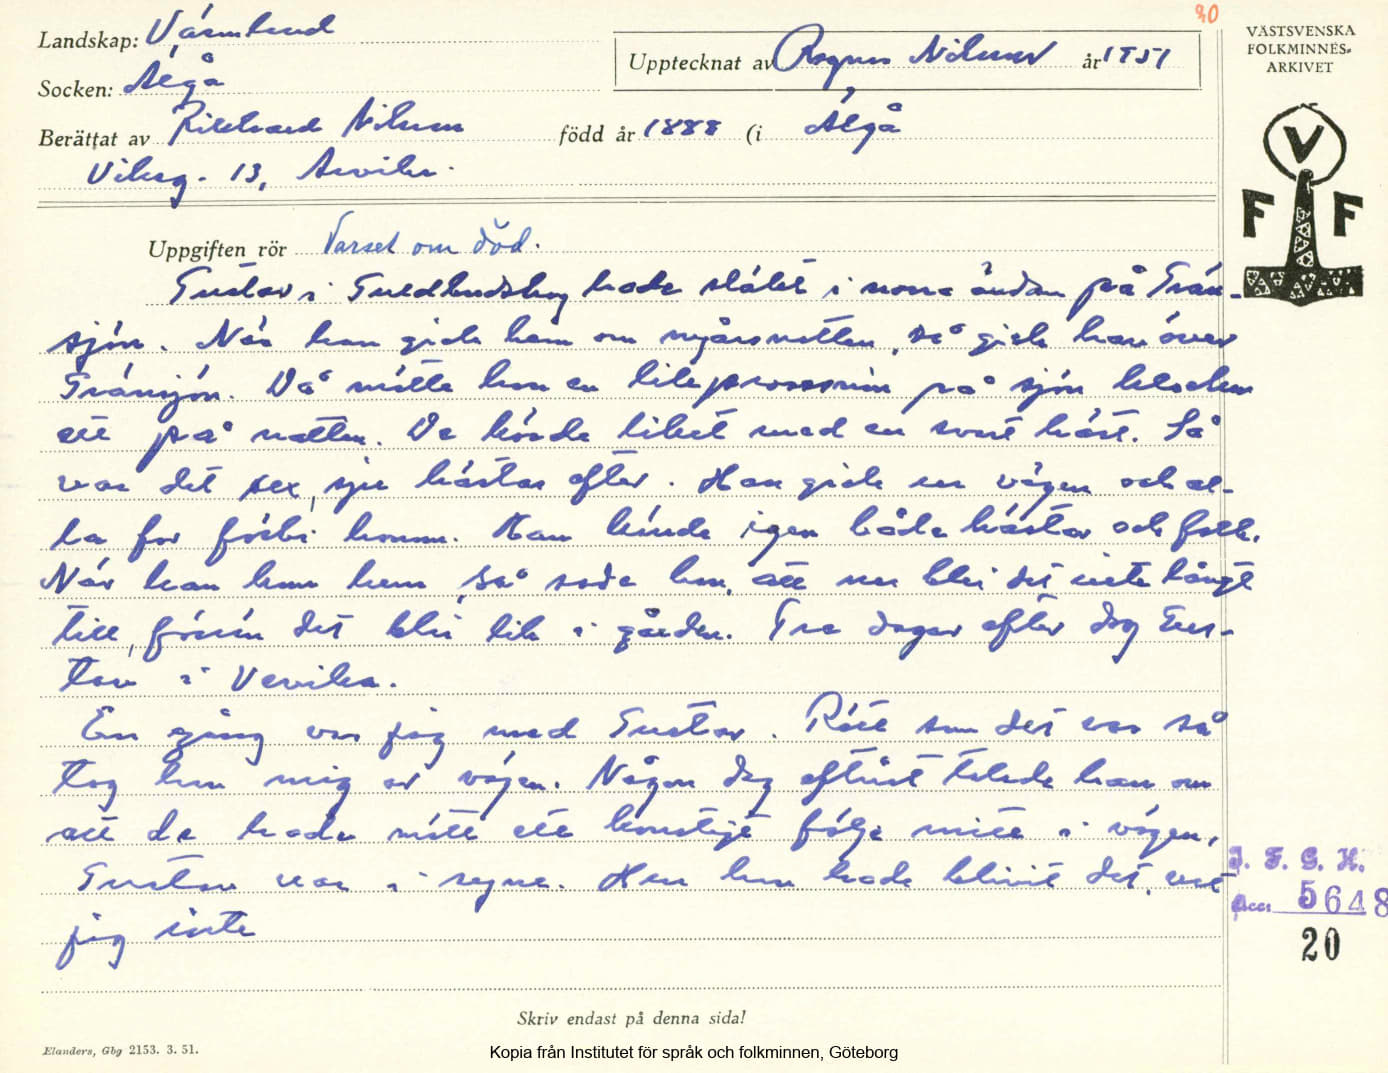 90
VÄSTSVENSKA
FOLKMINNES-
ARKIVET
V
F F
Landskap: Värmland
Upptecknat av Ragnar Nilsson år 1951
Socken: Älgå
Berättat av Rikhard Nilsson född år 1888 (i Älgå
Viksg. 13, Arvika.
Uppgiften rör Varsel om död.
Gustav i hade slåtit i norra ändan på Trän-
sjön. När han gick hem om nyårsnatten, så gick han över
Tränsjön. Då mötte han en likprocession på sjön klockan
ett på natten. De körde liket med en svart häst. Så
var det sex, sju hästar efter. Han gick ur vägen och al-
la for förbi honom. Han kände igen både hästar och folk.
När han kom hem, så sade han, att nu blir det inte långt
till, förrän det blir lik i gården. Tre dagar efter dog Gus-
tav i
En gång var jag med Gustav. Rätt som det var så
tog han mig av vägen. Någon dag efteråt talade han om
att de hade mött ett konstigt följe mitt i vägen,
Gustav var i syne. Hur han hade blivit det, vet
jag inte
I. F. G. H.
Acc. 5648
20
Skriv endast på denna sida!
Elanders, Gbg 2153. 3. 51.
Kopia från Institutet för språk och folkminnen, Göteborg